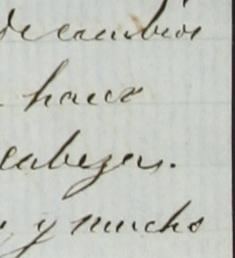 de cambios
hacer
cabezas.
y mucho